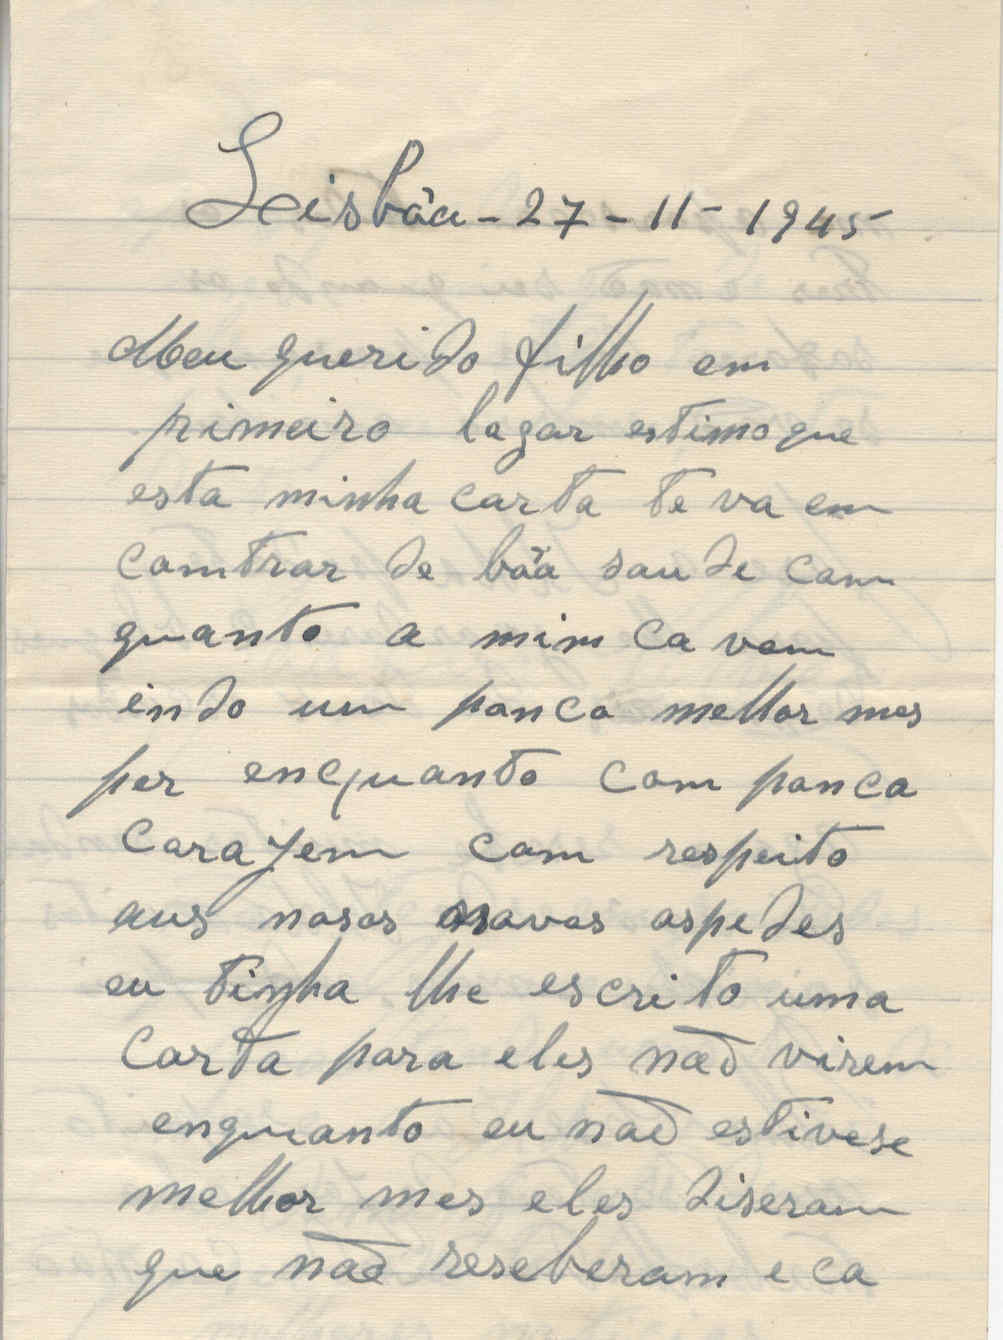 Leisbôa - 27 - 11 - 1945
Meu querido filho em
primeiro lugar estimo que
esta minha carta te va em
comtrar de bôa saude com
quanto a mim ca vom
indo um ponco melhor mes
por enquanto com ponca
corajem com respeito
aus nosos novos ospedes
eu tinha lhe escrito uma
carta para eles não virem
enquanto eu não estivese
melhor mes eles diseram
que não reseberam e ca